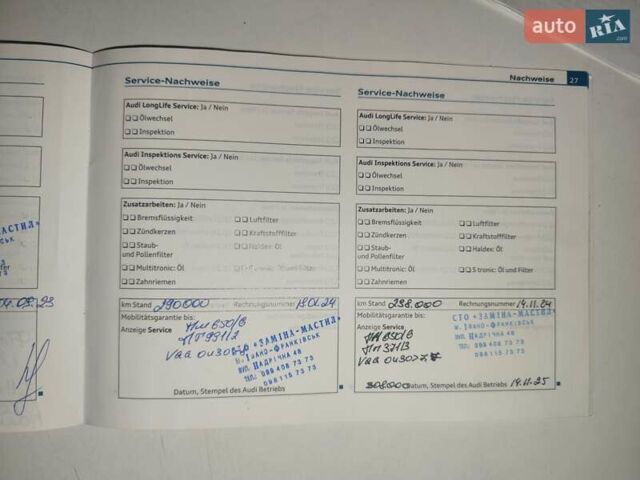 auto RIA .com
Nachweise 27
Service-Nachweise
Audi LongLife Service: Ja / Nein
Ölwechsel
Inspektion
Audi Inspektions Service: Ja / Nein
Ölwechsel
Inspektion
Zusatzarbeiten: Ja / Nein
Bremsflüssigkeit Luftfilter
Zündkerzen Kraftstofffilter
Staub- Haldex: Öl
und Pollenfilter
Multitronic: Öl
Zahnriemen
km Stand 290000 Rechnungsnummer
Mobilitätsgarantie bis:
Anzeige Service
СТО «ЗАМІНА-МАСТИЛ»
м. Івано-Франківськ
вул. Надрічна 4В
тел.: 099 408 73 73
098 115 73 73
Datum, Stempel des Audi Betriebs
Service-Nachweise
Audi LongLife Service: Ja / Nein
Ölwechsel
Inspektion
Audi Inspektions Service: Ja / Nein
Ölwechsel
Inspektion
Zusatzarbeiten: Ja / Nein
Bremsflüssigkeit Luftfilter
Zündkerzen Kraftstofffilter
Staub- Haldex: Öl
und Pollenfilter
Multitronic: Öl S tronic: Öl und Filter
Zahnriemen
km Stand 298.000 Rechnungsnummer 14.11.24
Mobilitätsgarantie bis:
Anzeige Service
СТО «ЗАМІНА-МАСТИЛ»
м. Івано-Франківськ
вул. Надрічна 4В
тел.: 099 408 73 73
098 115 73 73
308000 Datum, Stempel des Audi Betriebs 14.11.25